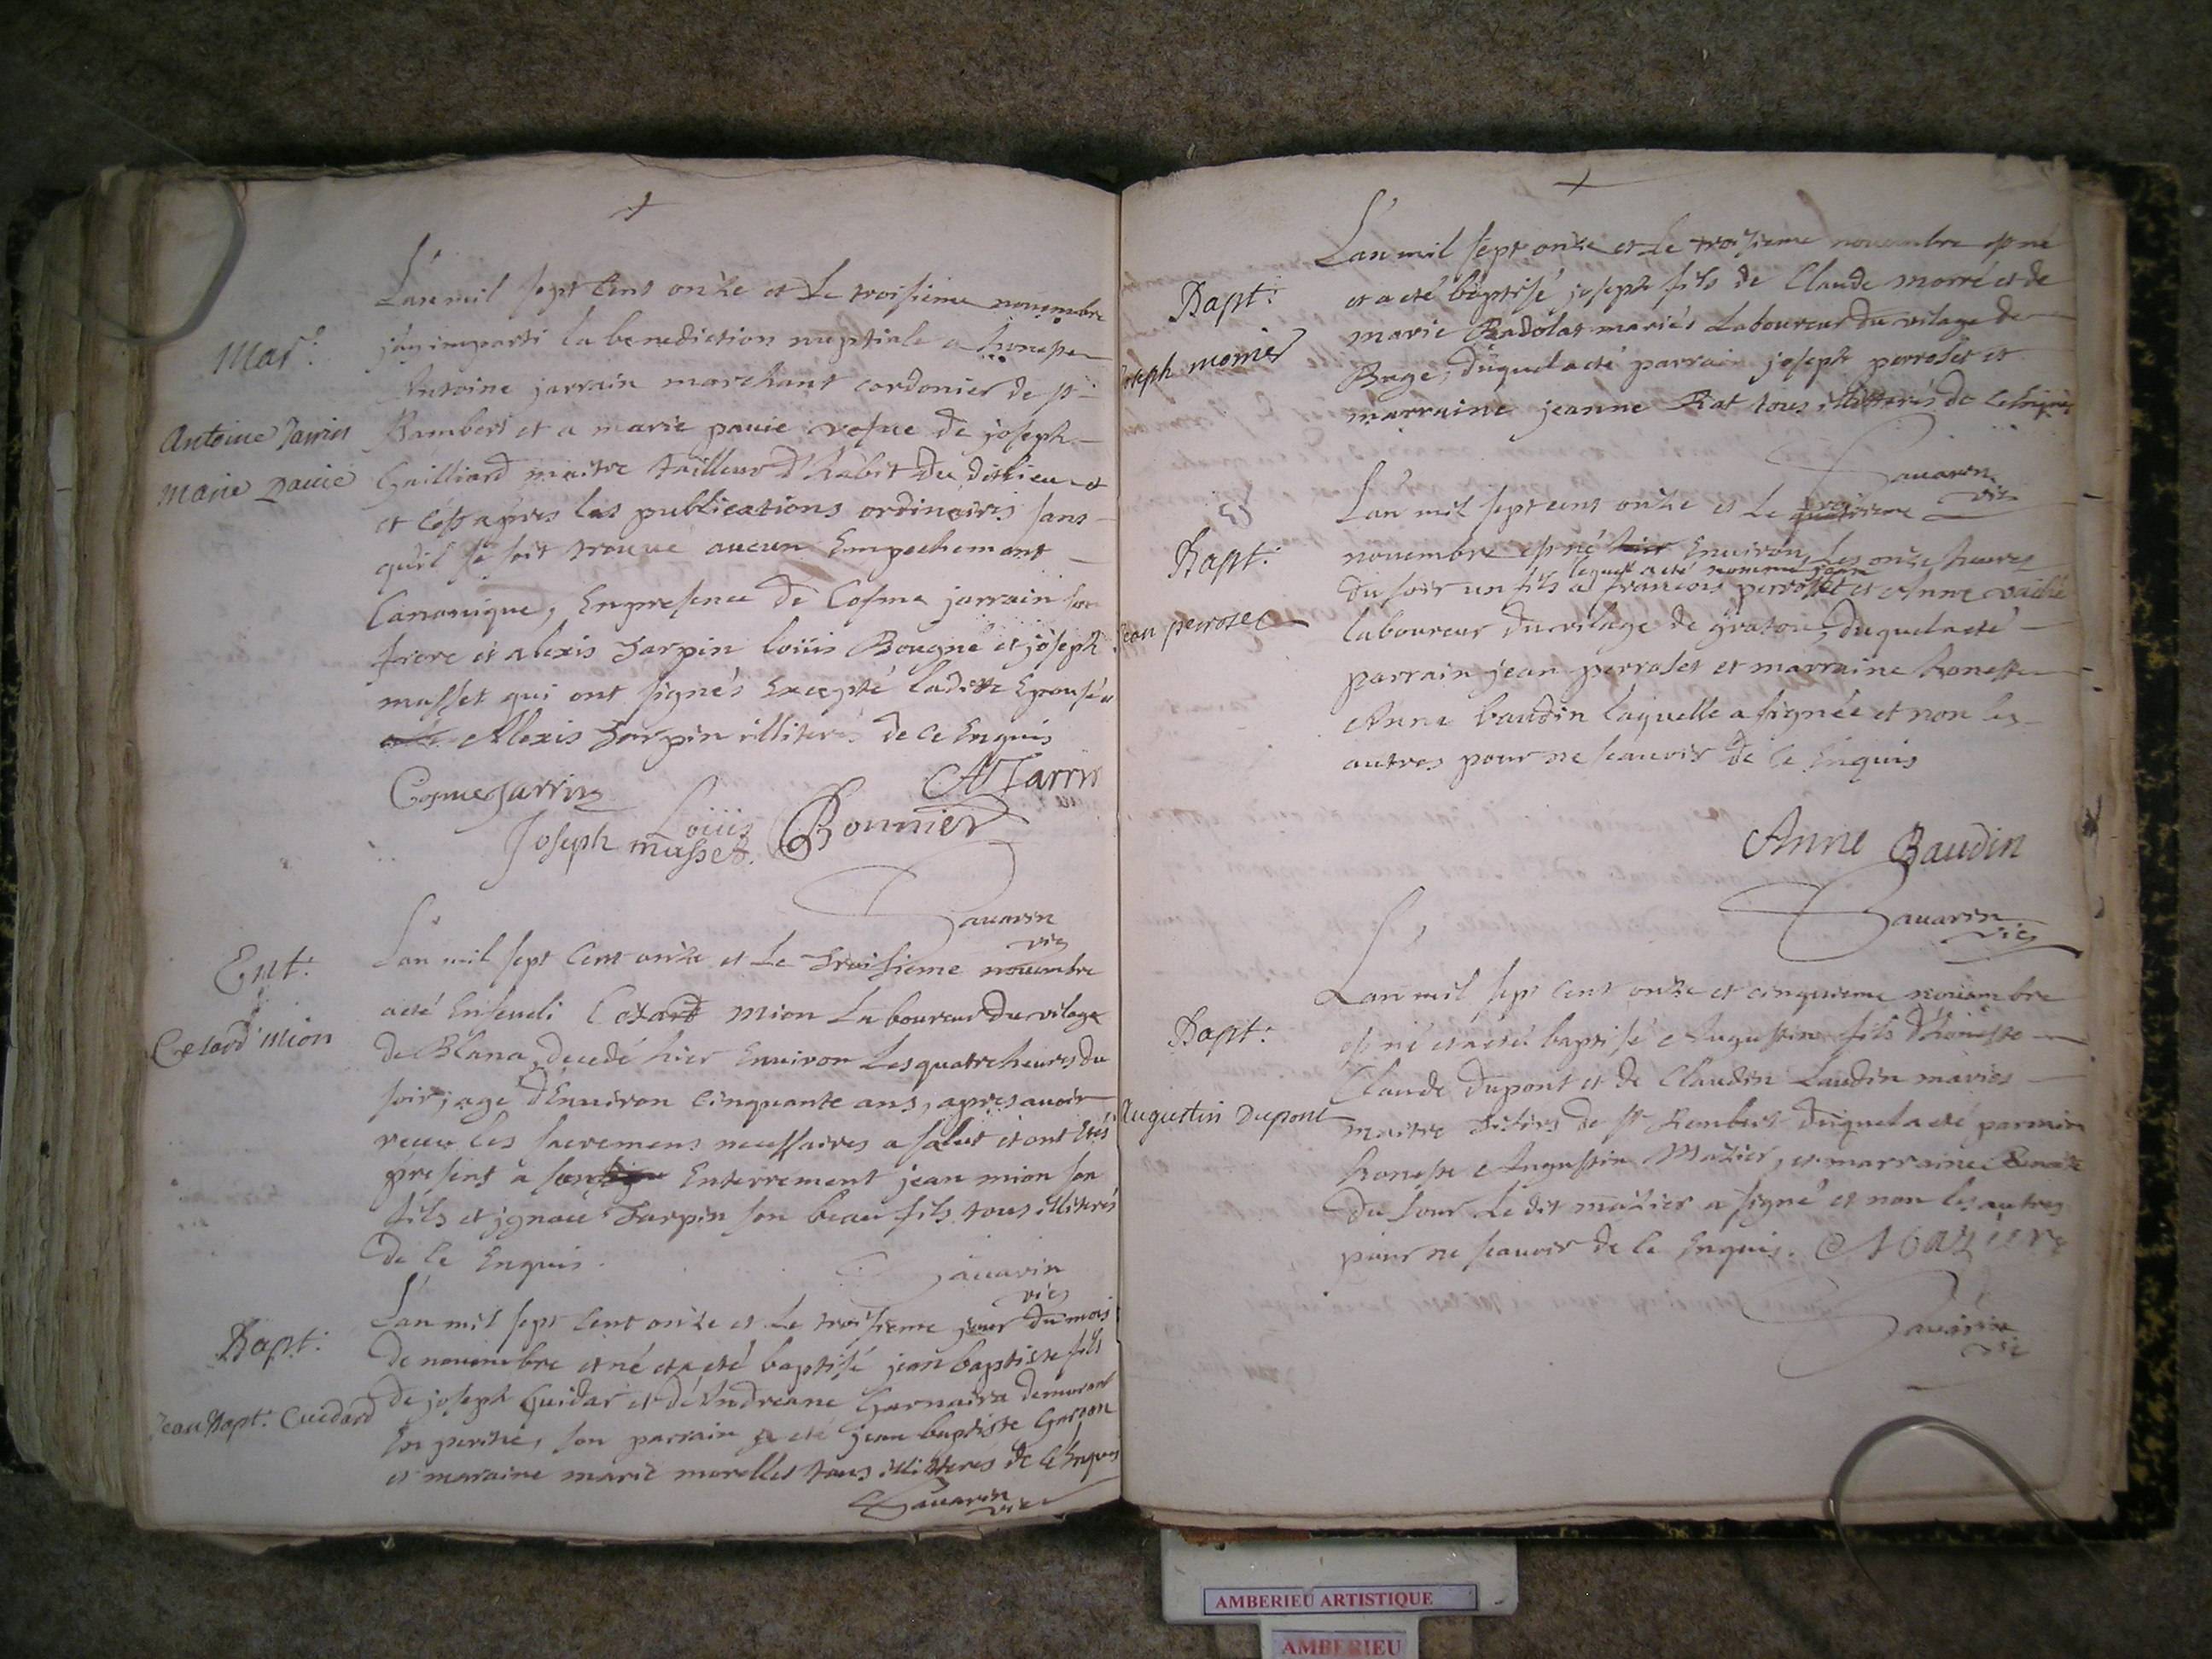 Mar.
Antoine Jarrin
Marie pauie
L'an mil sept cens onze et le troisieme nouembre
j'ay imparti la benediction nuptiale a honeste
Antoine jarrain marchant cordonier de st
Rambert et a marie pauie vefue de joseph
Gailliard maitre tailleur d'habit du dit lieu
et c'est apres les publications ordinaires sans
qu'il se soit trouué aucun Empechement
Canonique, En presence de Cosme jarrain son
frere et alexis Tarpin loüis Bougne et joseph
masset qui ont signés Excepté laditte Epousée
Alexis Tarpin illiterés de ce Enquis
Cosme Jarrin
A Jarrin
Loüis Bonnier
Joseph masset.
Sauarin
vic
Ent.
Cotard Mion
L'an mil sept Cent onze et le troisieme nouembre
a eté Enseueli Cotard Mion Laboureur du vilage
de Blana, decedé hier Enuiron les quatre heures du
soir, agé d'Enuiron cinquante ans, apres auoir
receu les sacremens necessaires a salut et ont Etés
presens a son Enterrement jean mion son
fils et jgnace Tarpin son beau fils tous illiterés
de ce Enquis.
Sauarin
vic
Bapt.
Jean Bapt. Cuidard
L'an mil sept Cent onze et le troisieme jour du mois
de nouembre et né et a eté baptisé jean baptiste fils
de joseph Guidar et d'Andreane Garnaire demeurant
En , son parrain a eté jean baptiste Garson
et maraine marie morellet tous illitteres de ce Enquis
Sauarin
vic
Bapt.
Joseph morrier
L'an mil sept onze et le troisieme nouembre est né
et a eté baptisé joseph fils de Claude morré et de
marie Radolat mariés Laboureur du vilage de
Buge, duquel a eté parrain joseph perroset et
marraine jeanne Rat tous illitterés de ce Enquis
Sauarin
vic
Bapt.
Jean perrozet
L'an mil sept cens onze et le troisieme
nouembre est né Enuiron les onze heures
lequel a eté nommé jean
du soir un fils a francois perroset et Anne
laboureur du vilage de graton, duquel a eté
parrain jean perroset et marraine honeste
Anne baudin laquelle a signée et non les
autres pour ne scauoir de ce Enquis
Anne Baudin
Sauarin
vic
Bapt.
Augustin Dupont
L'an mil sept cens onze et cinquieme nouembre
est né et a eté baptisé Augustin fils d'honeste
Claude Dupont et de Claudin Laudin mariés
maitre de st Rembert duquel a eté parrain
honeste Augustin Mazier, et marraine Benoite
Du four Ledit mazier a signé et non les autres
pour ne scauoir de ce Enquis. Maziere
Sauarin
vic
AMBERIEU ARTISTIQUE
AMBERIEU